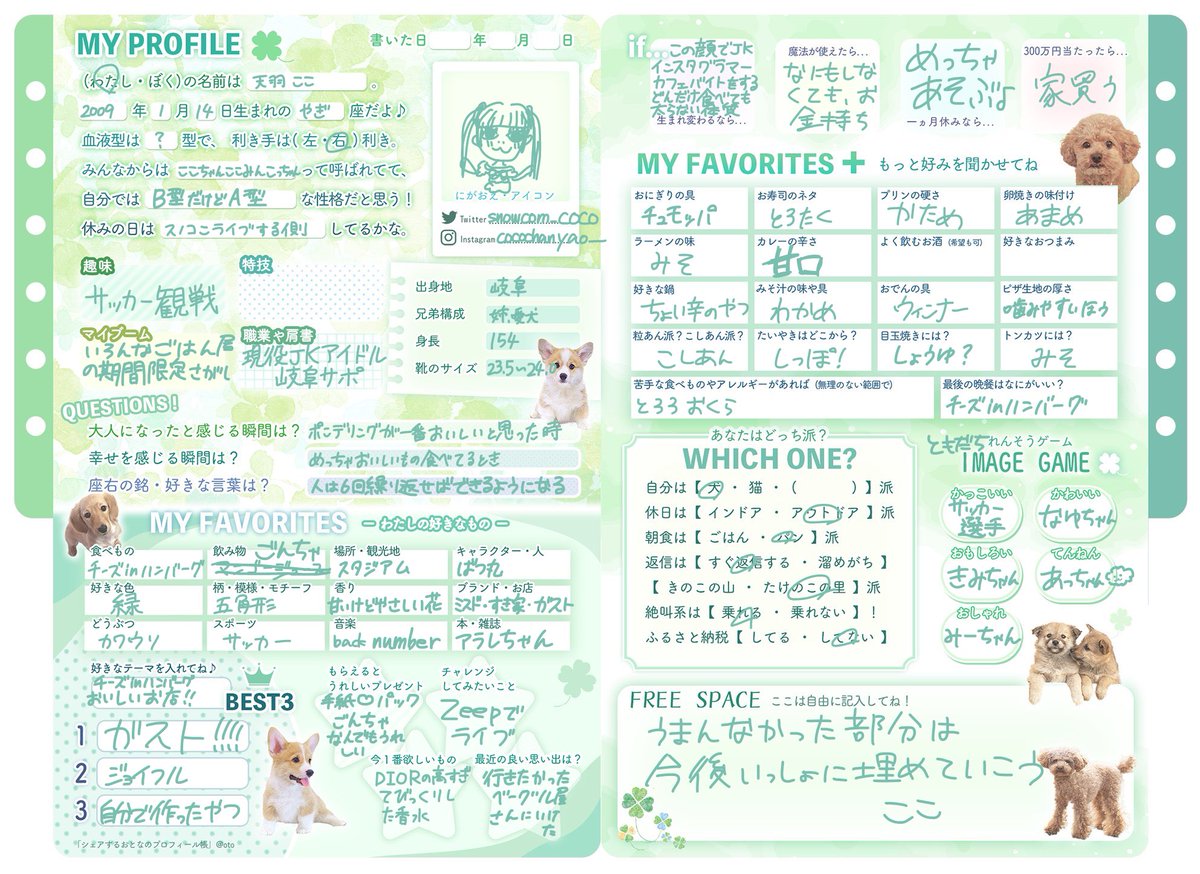 MY PROFILE
書いた日 年 月 日
(わたし・ぼく)の名前は 天羽ここ 。
2009 年 1 月 14 日生まれの やぎ 座だよ♪
血液型は ? 型で、 利き手は(左・右)利き。
みんなからは ここちゃんここみんこっちゃん って呼ばれてて、
自分では B型だけどA型 な性格だと思う!
休みの日は スノこらライブする側 してるかな。
にがおえ・アイコン
Twitter snowcom_coco
Instagram cocochan.yao_
趣味
サッカー観戦
特技
マイブーム
いろんなごはん屋
の期間限定さがし
職業や肩書
現役JKアイドル
岐阜サポ
出身地 岐阜
兄弟構成 妹、愛犬
身長 154
靴のサイズ 23.5〜24.0
QUESTIONS!
大人になったと感じる瞬間は? ポンデリングが一番おいしいと思った時
幸せを感じる瞬間は? めっちゃおいしいもの食べてるとき
座右の銘・好きな言葉は? 人は6回繰り返せばできるようになる
MY FAVORITES -わたしの好きなもの-
食べもの
チーズinハンバーグ
飲み物
ごんちゃ
場所・観光地
スタジアム
キャラクター・人
ばつ丸
好きな色
緑
柄・模様・モチーフ
五角形
香り
甘いけどやさしい花
ブランド・お店
ミスド・すき家・ガスト
どうぶつ
カワウソ
スポーツ
サッカー
音楽
back number
本・雑誌
アラレちゃん
好きなテーマを入れてね♪
チーズinハンバーグ
おいしいお店!!
BEST3
1 ガスト!!!!
2 ジョイフル
3 自分で作ったやつ
もらえると
うれしいプレゼント
手紙 パック
ごんちゃ
なんでもうれ
しい
チャレンジ
してみたいこと
Zeepで
ライブ
今1番欲しいもの
DIORの高すぎ
てびっくりし
た香水
最近の良い思い出は?
行きたかった
ベーグル屋
さんにいけ
た
「シェアするおとなのプロフィール帳」@oto
if...
この顔でJK
インスタグラマー
カフェバイトをする
どんだけ食べても
太らない
生まれ変わるなら...
魔法が使えたら...
なにもしな
くても、お
金持ち
めっちゃ
あそぶよ
一ヵ月休みなら...
300万円当たったら...
家買う
MY FAVORITES + もっと好みを聞かせてね
おにぎりの具
チュモッパ
お寿司のネタ
とろたく
プリンの硬さ
かため
卵焼きの味付け
あまめ
ラーメンの味
みそ
カレーの辛さ
甘口
よく飲むお酒(希望も可)
好きなおつまみ
好きな鍋
ちょい辛のやつ
みそ汁の味や具
わかめ
おでんの具
ウィンナー
ピザ生地の厚さ
噛みやすいほう
粒あん派?こしあん派?
こしあん
たいやきはどこから?
しっぽ!
目玉焼きには?
しょうゆ?
トンカツには?
みそ
苦手な食べものやアレルギーがあれば(無理のない範囲で)
とろろ おくら
最後の晩餐はなにがいい?
チーズinハンバーグ
あなたはどっち派?
WHICH ONE?
自分は【 犬 ・ 猫 ・ ( ) 】派
休日は【 インドア ・ アウトドア 】派
朝食は【 ごはん ・ パン 】派
返信は【 すぐ返信する ・ 溜めがち 】
【 きのこの山 ・ たけのこの里 】派
絶叫系は【 乗れる ・ 乗れない 】!
ふるさと納税【 してる ・ してない 】
ともだちれんそうゲーム
IMAGE GAME
かっこいい
サッカー
選手
かわいい
なゆちゃん
おもしろい
きみちゃん
てんねん
あっちゃん
おしゃれ
みーちゃん
FREE SPACE ここは自由に記入してね!
うまんなかった部分は
今後いっしょに埋めていこう
ここ